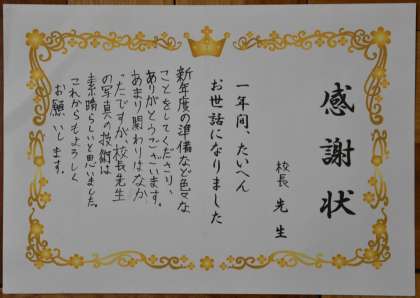 感謝状
校長 先生
一年間、たいへん
お世話になりました
新年度の準備など色々な
ことをしてくださり、
ありがとうございます。
あまり関わりはなか
ったですが、校長先生
の写真の技術は
素晴らしいと思いました。
これからもよろしく
お願いします。